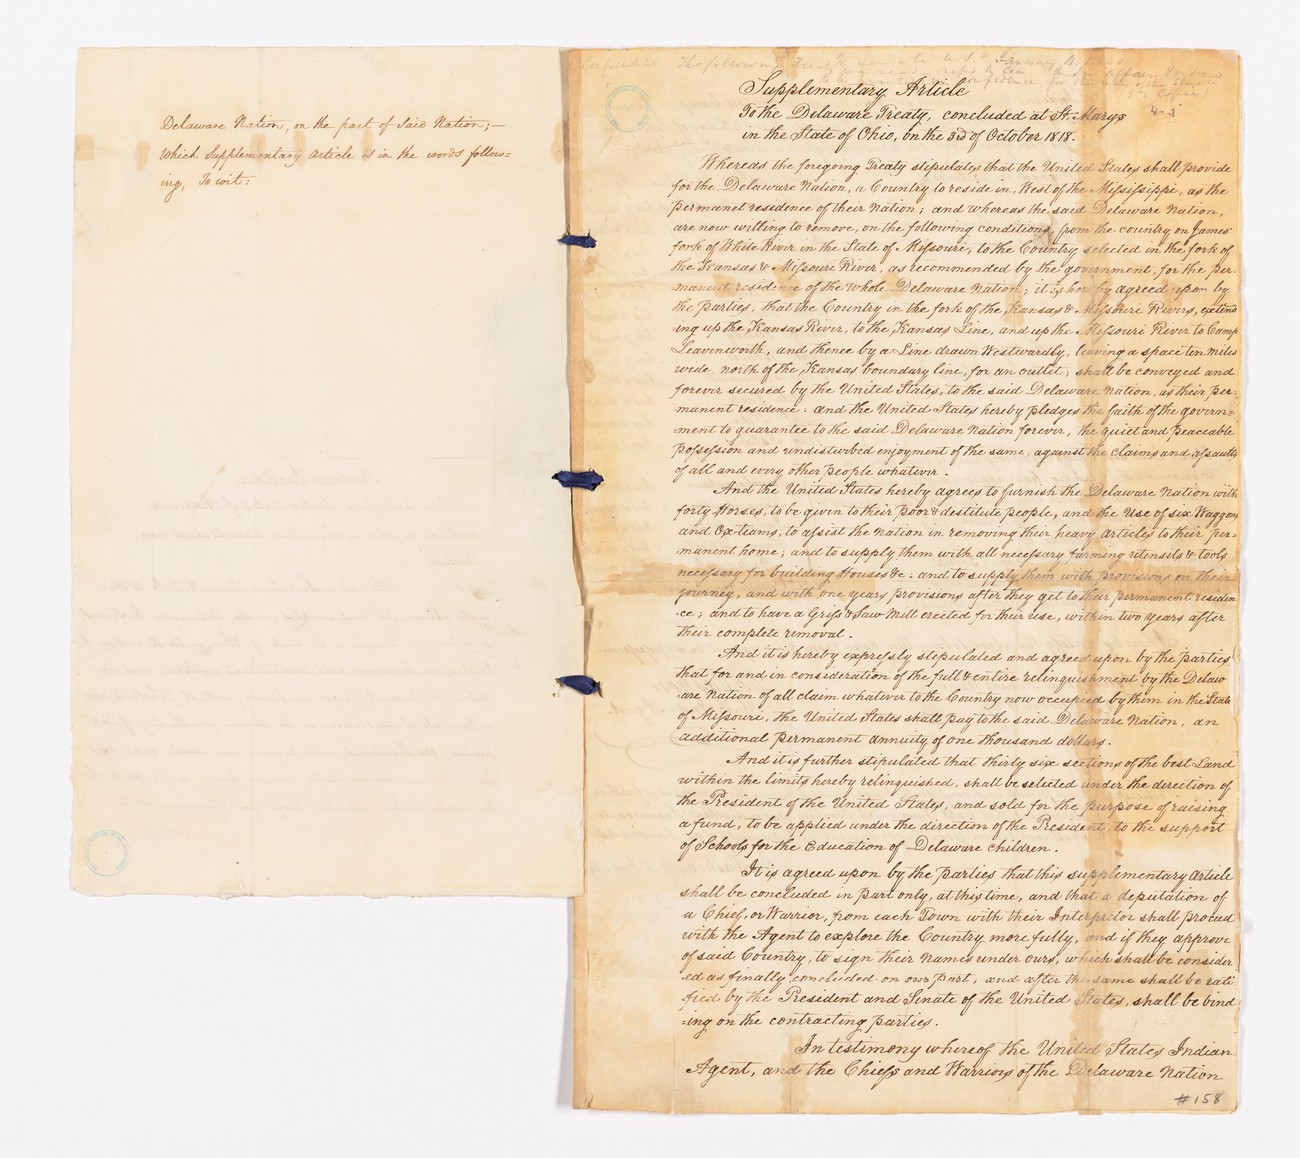 Delaware Nation, on the part of Said Nation;—
Which Supplementary Article is in the words follow=
ing, To wit:
Supplementary Article
To the Delaware Treaty, concluded at St. Marys
in the State of Ohio, on the 3rd of October 1818.
Whereas the foregoing Treaty stipulates that the United States shall provide
for the Delaware Nation, a Country to reside in, West of the Mississippi, as the
permanet residence of their Nation; and whereas the said Delaware Nation,
are now willing to remove, on the following conditions, from the country on James'
fork of White River in the State of Missouri, to the Country selected in the fork of
the Kansas & Missouri River, as recommended by the government, for the per-
manent residence of the whole Delaware Nation; it is hereby agreed upon by
the parties, that the Country in the fork of the Kansas & Missouri Rivers, extend
ing up the Kansas River, to the Kansas Line, and up the Missouri River to Camp
Leavenworth, and thence by a Line drawn Westwardly, leaving a space ten miles
wide north of the Kansas boundary line, for an outlet; shall be conveyed and
forever secured by the United States, to the said Delaware Nation, as their per-
manent residence: and the United States hereby pledges the faith of the govern=
ment to guarantee to the said Delaware Nation forever, the quiet and peaceable
possession and undisturbed enjoyment of the same, against the claims and assaults
of all and every other people whatever.
And the United States hereby agrees to furnish the Delaware Nation with
forty Horses, to be given to their poor & destitute people, and the Use of six Waggons
and Ox-teams, to assist the nation in removing their heavy articles to their per-
manent home; and to supply them with all necessary farming utensils & tools
necessary for building Houses &c: and to supply them with provisions on their
journey, and with one years provisions after they get to their permanent residen
-ce; and to have a Grist & Saw Mill erected for their use, within two years after
their complete removal.
And it is hereby expressly stipulated and agreed upon by the parties
that for and in consideration of the full & entire relinquishment by the Delaw
are Nation of all claim whatever to the Country now occupied by them in the State
of Missouri, the United States shall pay to the said Delaware Nation, an
additional permanent annuity of one thousand dollars.
And it is further stipulated that thirty six sections of the best Land
within the limits hereby relinquished, shall be selected under the direction of
the President of the United States, and sold for the purpose of raising
a fund, to be applied under the direction of the President, to the support
of Schools for the Education of Delaware children.
It is agreed upon by the parties that this supplementary article
shall be concluded in part only, at this time, and that a deputation of
a Chief, or Warrior, from each Town with their Interpretor shall proceed
with the Agent to explore the Country more fully, and if they approve
of said Country, to sign their names under ours, which shall be consider
ed as finally concluded on our part; and after the same shall be rati
fied by the President and Senate of the United States, shall be bind
=ing on the contracting parties.
In testimony whereof the United States Indian
Agent, and the Chiefs and Warriors of the Delaware Nation
#158